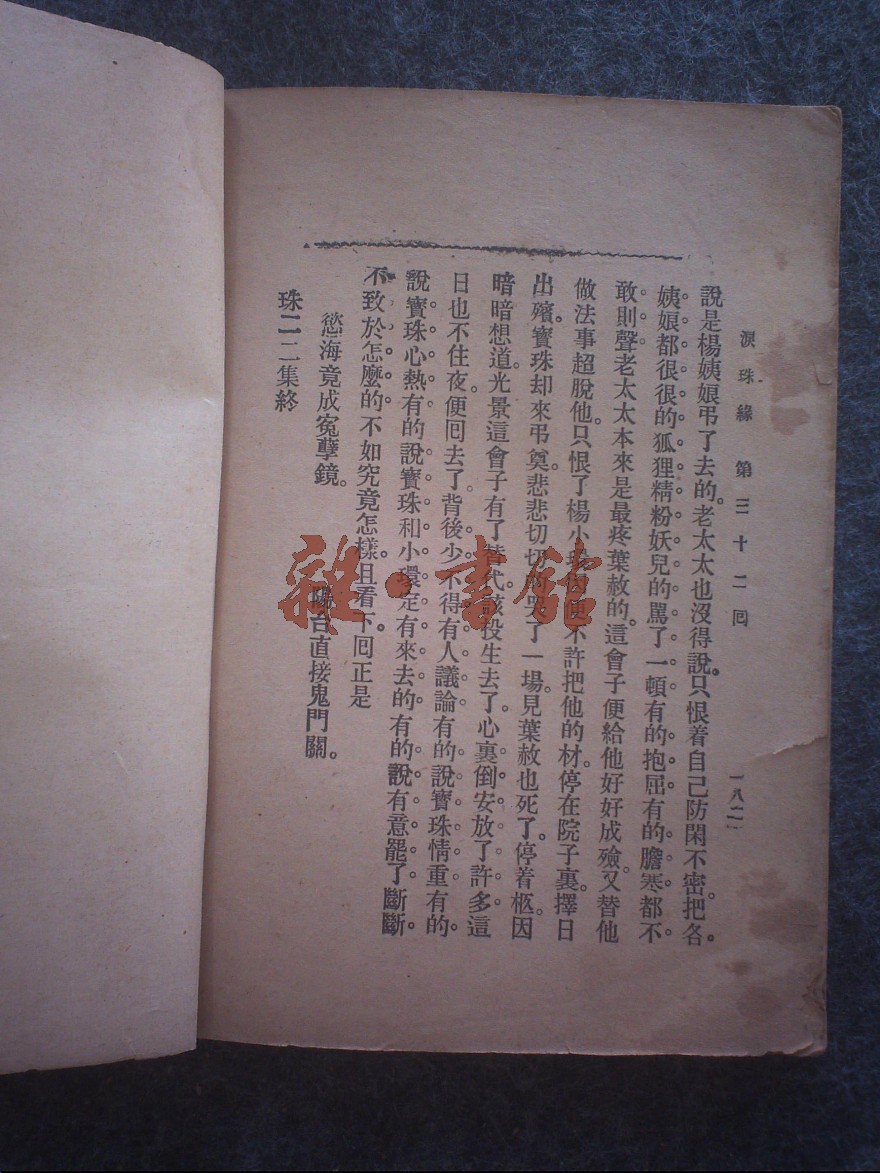 淚珠緣 第三十二囘 一八二
說是楊姨娘弔了去的。老太太也沒得說。只恨着自己防閑不密。把各
姨娘都很很的狐狸精粉妖兒的罵了一頓有的抱屈有的膽寒都不
敢則聲老太太本來是最疼葉赦的。這會子便給他好好成殮。又替他
做法事超脫他。只恨了楊小環因便不許把他的材。停在院子裏。擇日
出殯。寶珠却來弔奠。悲悲切切的哭了一場。見葉赦也死了。停着柩。因
暗暗想道。光景這會子有了替代。該投生去了。心裏倒安放了許多這
日也不住夜。便囘去了。背後少不得有人議論有的說寶珠情重有的
說寶珠心熱有的說寶珠和小環定有來去的有的說有意罷了斷斷
不致於怎麼的不如究竟怎樣。且看下囘正是
慾海竟成寃孽鏡。 陽台直接鬼門關。
珠二二集終
雜·書館